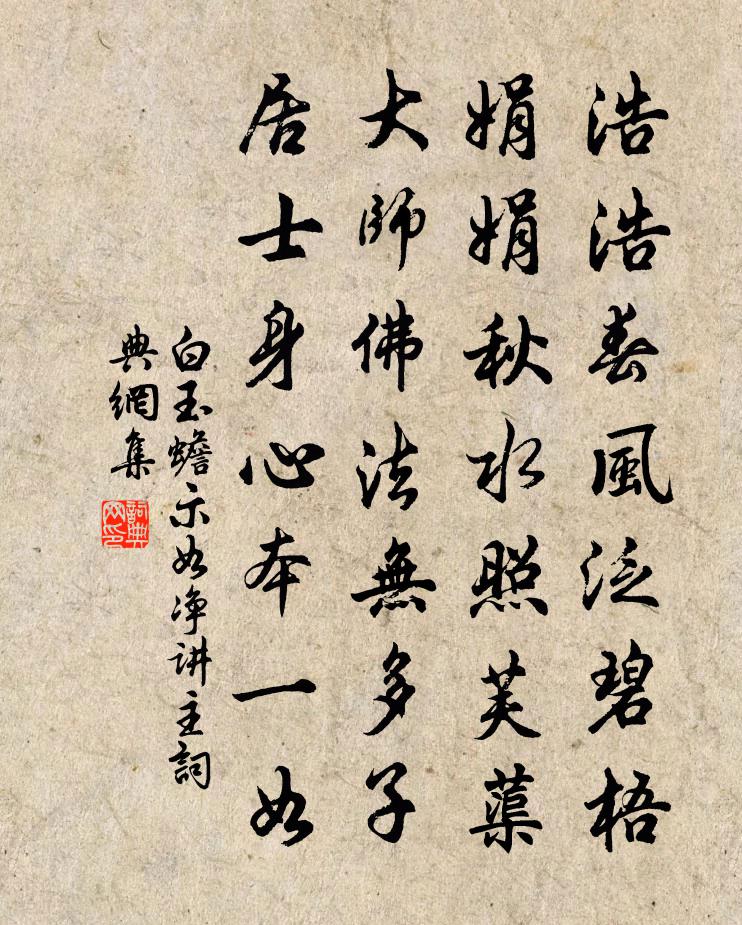 浩浩春風泛碧梧
娟娟秋水照芙蕖
大師佛法無多子
居士身心本一如
白玉蟾示如净讲主詞
典網集
詞典網印